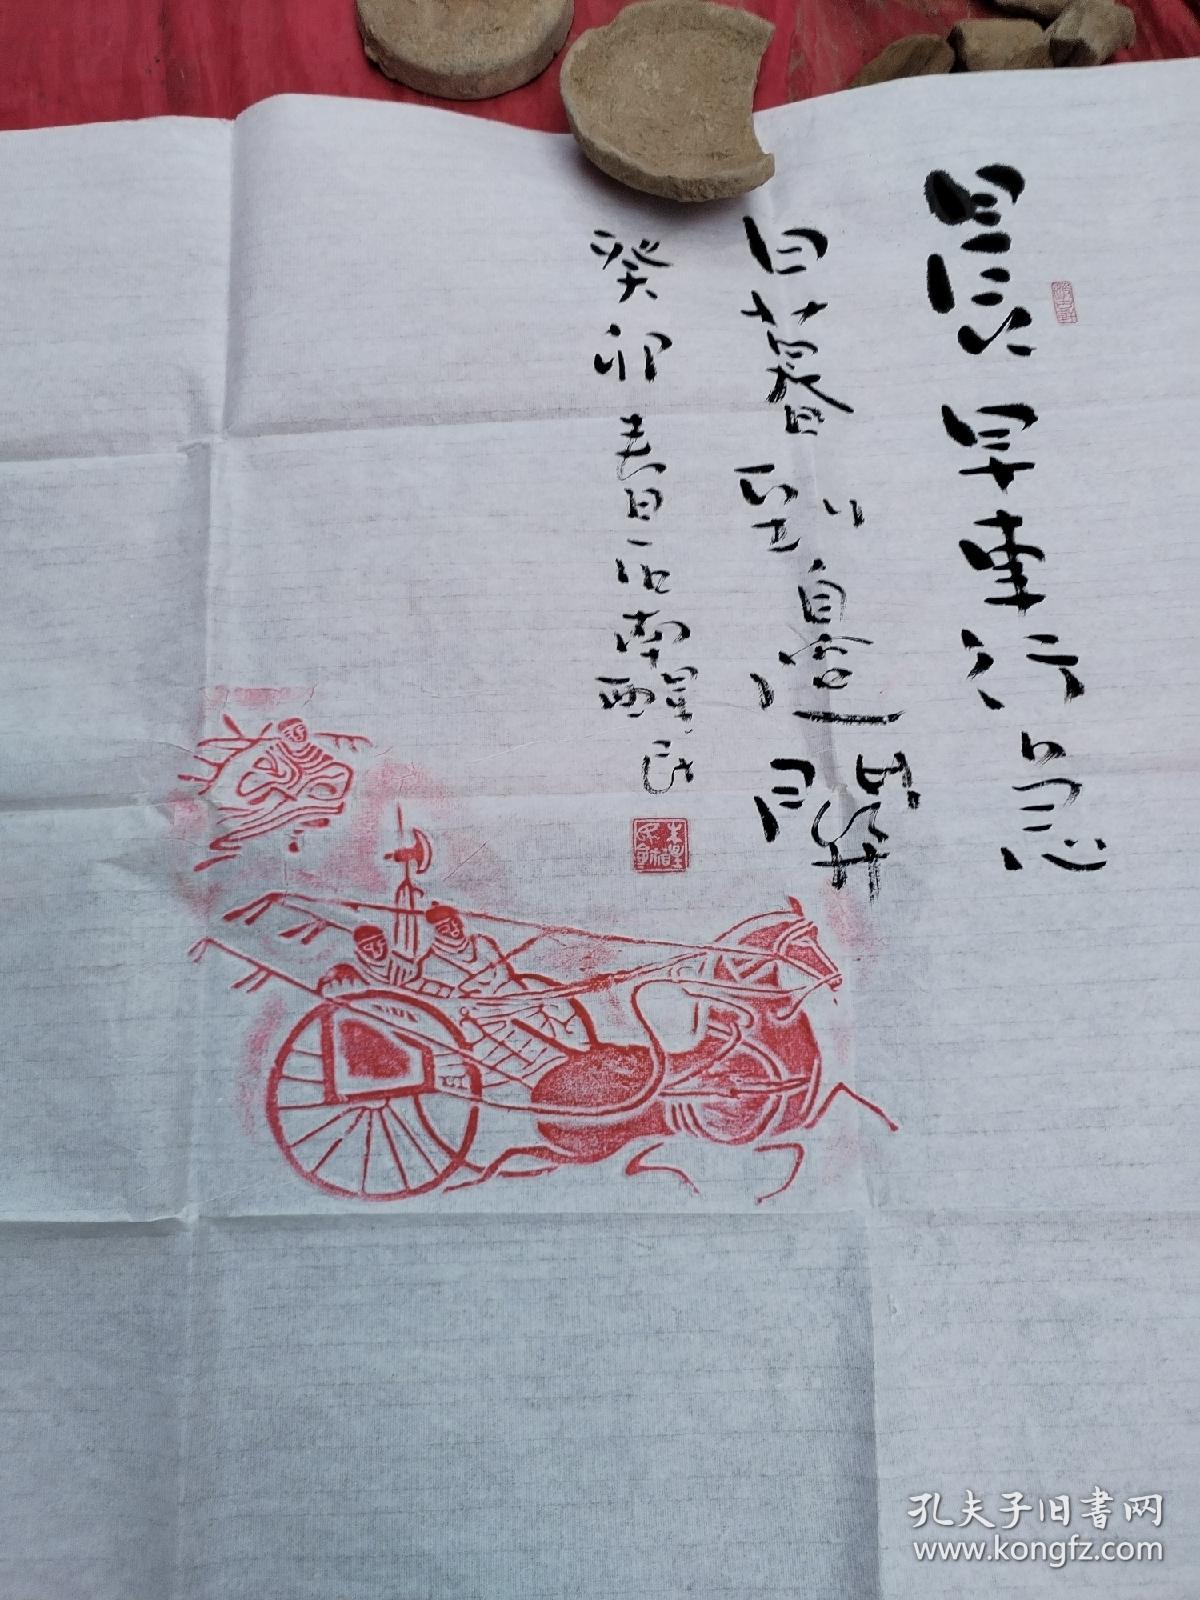 晨早車行急
日暮到邊關
癸卯春日南醒民
孔夫子旧书网
www.kongfz.com